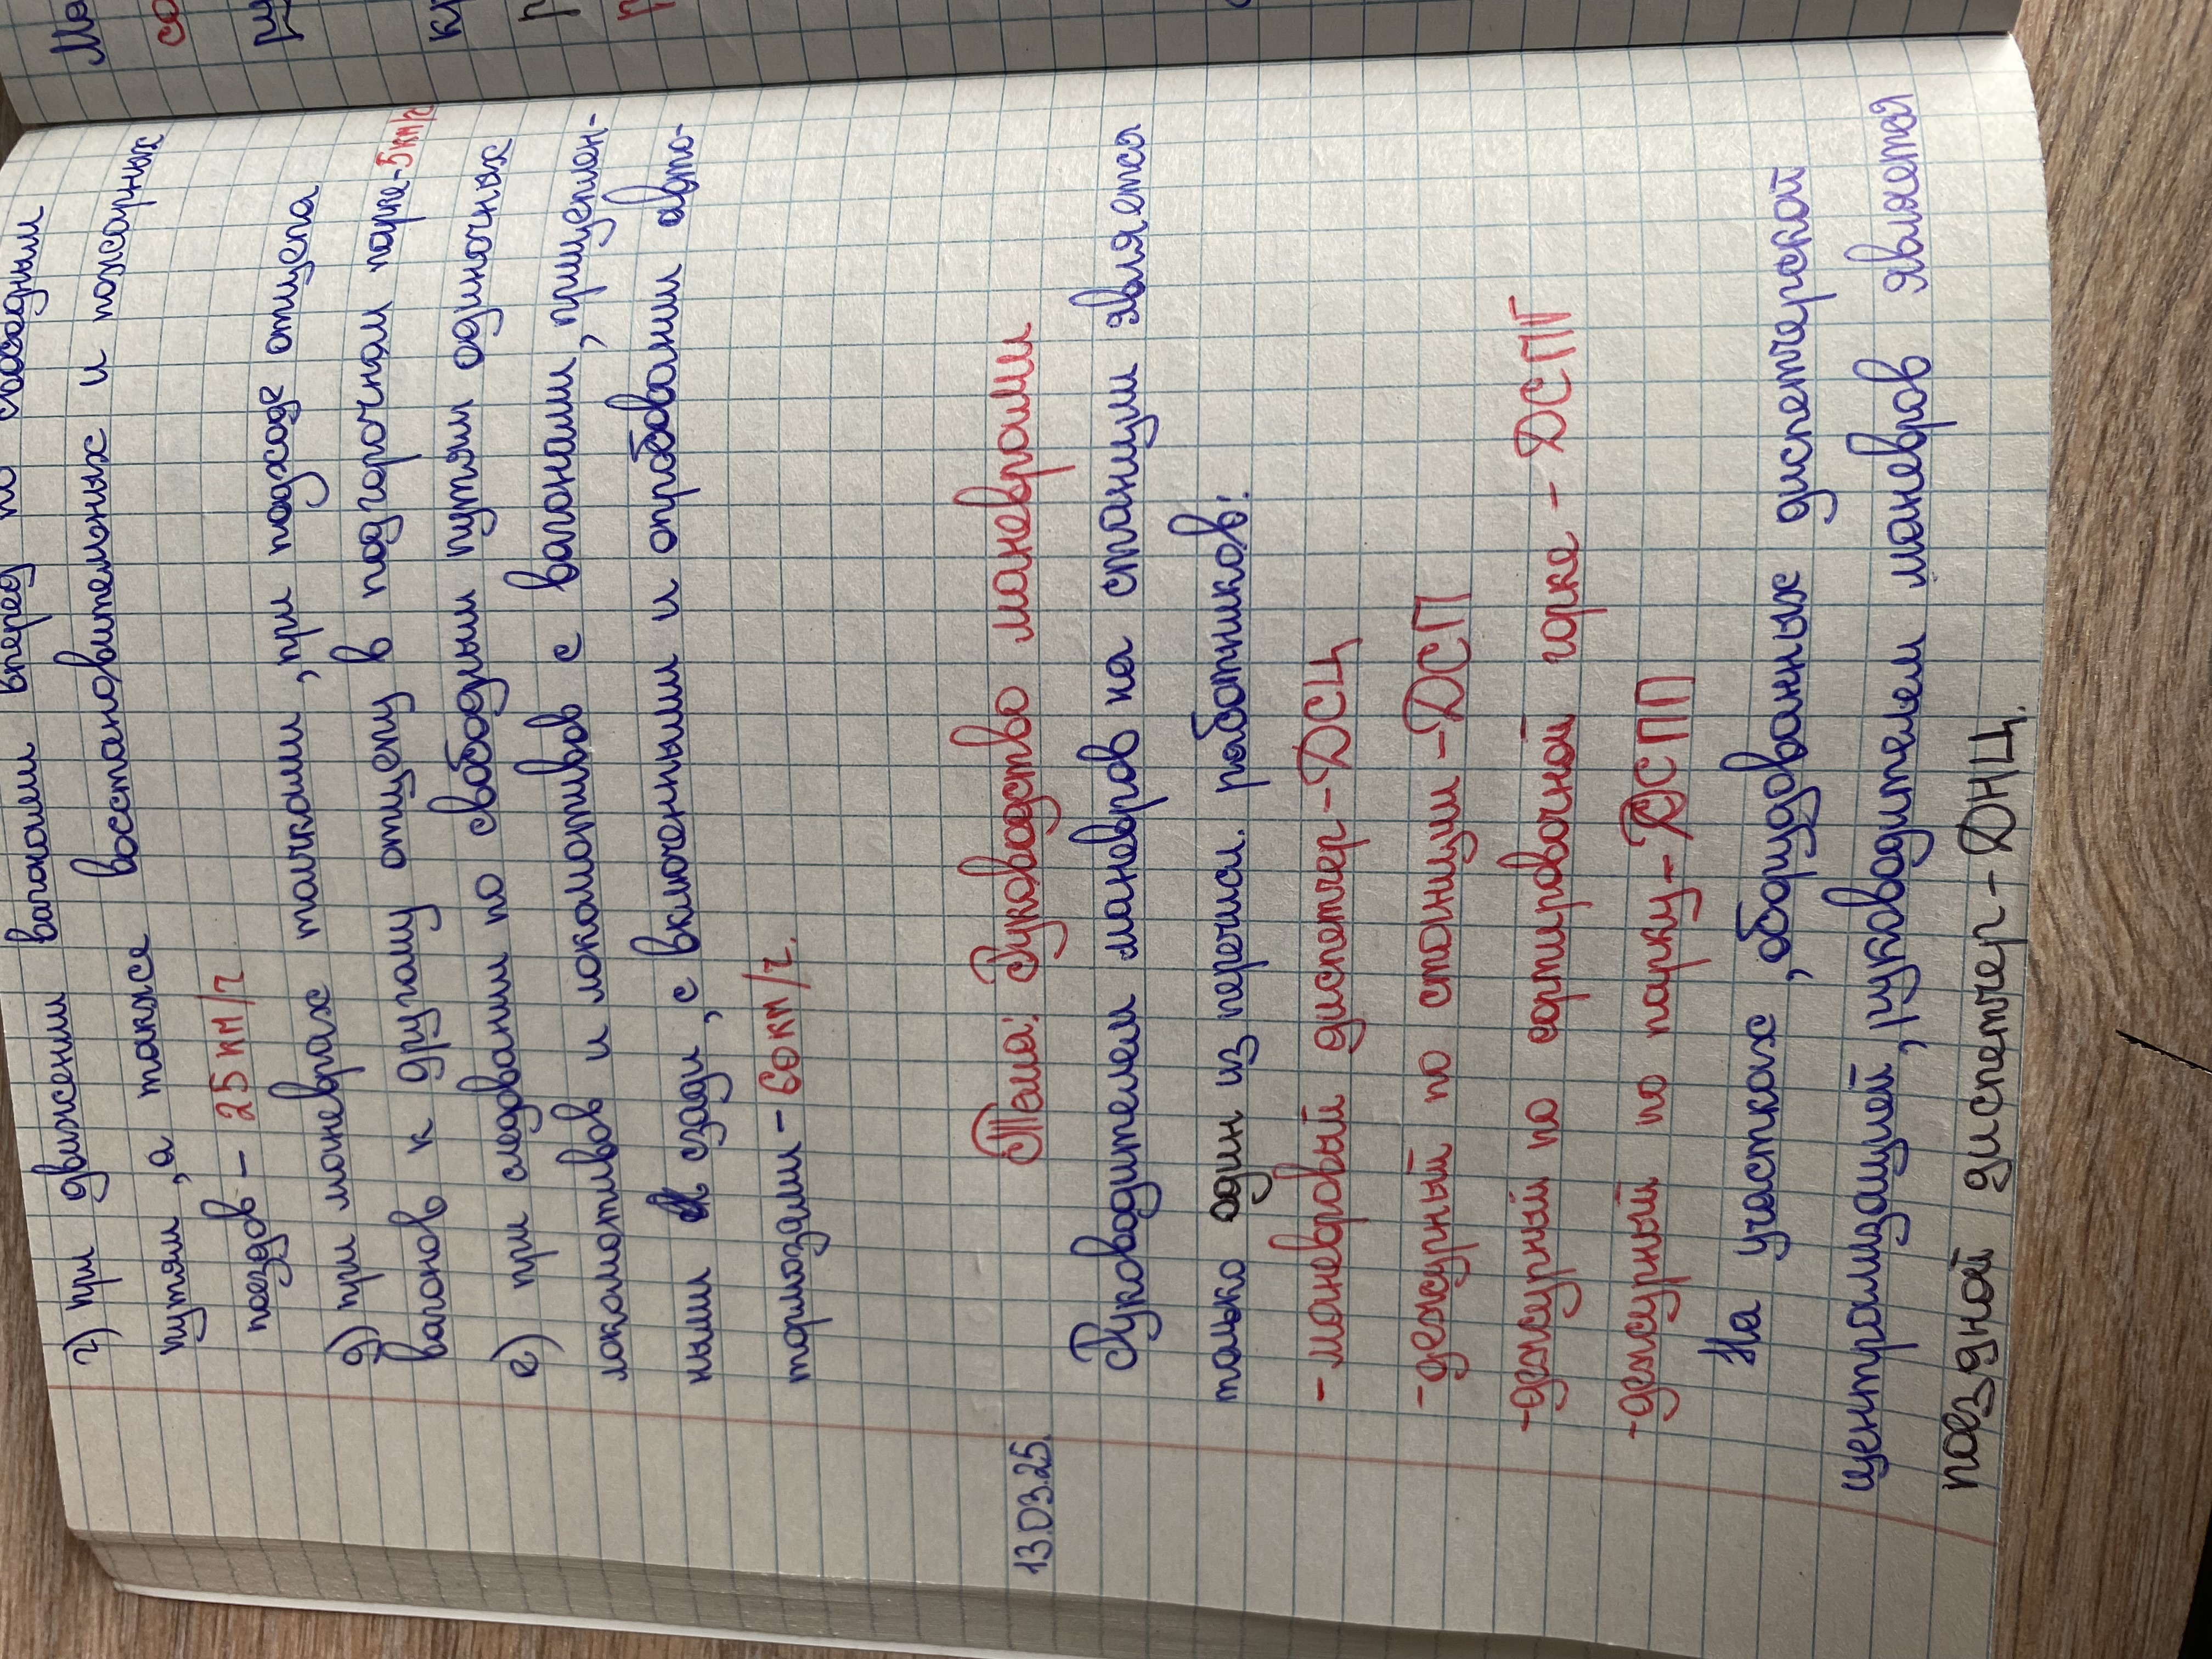 г) при движении вагонами вперед по свободным
путям, а также восстановительных и пожарных
поездов - 25 км/ч
д) при маневрах толчками, при подходе отцепа
вагонов к другому отцепу в подгорочном парке-5км/ч
е) при следовании по свободным путям одиночных
локомотивов и локомотивов с вагонами, прицеплен-
ными сзади, с включенными и опробовании авто-
тормозами - 60км/ч.
13.03.25. Тема: Руководство маневрами
Руководителем маневров на станции является
только один из перечисл. работников:
- маневровый диспетчер-ДСЦ
-дежурный по станции-ДСП
-дежурный по сортировочной горке - ДСПГ
-дежурный по парку-ДСПП
На участках, оборудованных диспетчерской
централизацией, руководителем маневров является
поездной диспетчер-ДНЦ.